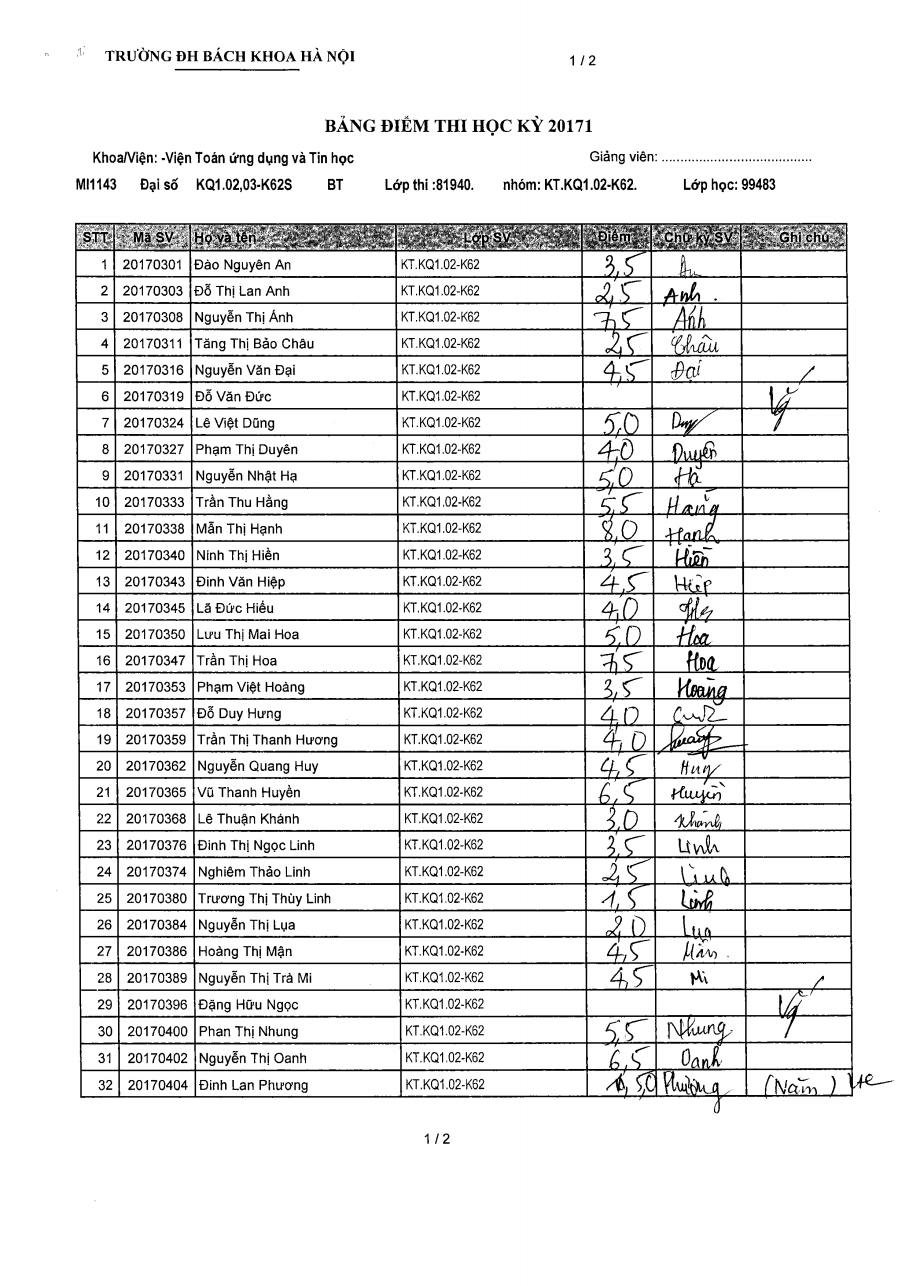 TRƯỜNG ĐH BÁCH KHOA HÀ NỘI 1 / 2
BẢNG ĐIỂM THI HỌC KỲ 20171
Khoa/Viện: -Viện Toán ứng dụng và Tin học Giảng viên: ........................................
MI1143 Đại số KQ1.02,03-K62S BT Lớp thi :81940. nhóm: KT.KQ1.02-K62. Lớp học: 99483
STT Mã SV Họ và tên Lớp SV Điểm Chữ ký SV Ghi chú
1 20170301 Đào Nguyên An KT.KQ1.02-K62 3,5 An
2 20170303 Đỗ Thị Lan Anh KT.KQ1.02-K62 2,5 Anh .
3 20170308 Nguyễn Thị Ánh KT.KQ1.02-K62 7,5 Ánh
4 20170311 Tăng Thị Bảo Châu KT.KQ1.02-K62 2,5 Châu
5 20170316 Nguyễn Văn Đại KT.KQ1.02-K62 4,5 Đại
6 20170319 Đỗ Văn Đức KT.KQ1.02-K62 Vg
7 20170324 Lê Việt Dũng KT.KQ1.02-K62 5,0
8 20170327 Phạm Thị Duyên KT.KQ1.02-K62 4,0 Duyên
9 20170331 Nguyễn Nhật Hạ KT.KQ1.02-K62 5,0 Hạ
10 20170333 Trần Thu Hằng KT.KQ1.02-K62 5,5 Hằng
11 20170338 Mẫn Thị Hạnh KT.KQ1.02-K62 8,0 Hạnh
12 20170340 Ninh Thị Hiền KT.KQ1.02-K62 3,5 Hiền
13 20170343 Đinh Văn Hiệp KT.KQ1.02-K62 4,5 Hiệp
14 20170345 Lã Đức Hiếu KT.KQ1.02-K62 4,0
15 20170350 Lưu Thị Mai Hoa KT.KQ1.02-K62 5,0 Hoa
16 20170347 Trần Thị Hoa KT.KQ1.02-K62 7,5 Hoa
17 20170353 Phạm Việt Hoàng KT.KQ1.02-K62 3,5 Hoàng
18 20170357 Đỗ Duy Hưng KT.KQ1.02-K62 4,0
19 20170359 Trần Thị Thanh Hương KT.KQ1.02-K62 4,0
20 20170362 Nguyễn Quang Huy KT.KQ1.02-K62 4,5 Huy
21 20170365 Vũ Thanh Huyền KT.KQ1.02-K62 6,5 Huyền
22 20170368 Lê Thuận Khánh KT.KQ1.02-K62 3,0 Khánh
23 20170376 Đinh Thị Ngọc Linh KT.KQ1.02-K62 3,5 Linh
24 20170374 Nghiêm Thảo Linh KT.KQ1.02-K62 2,5 Linh
25 20170380 Trương Thị Thùy Linh KT.KQ1.02-K62 1,5 Linh
26 20170384 Nguyễn Thị Lụa KT.KQ1.02-K62 2,0 Lụa
27 20170386 Hoàng Thị Mận KT.KQ1.02-K62 4,5 Mận .
28 20170389 Nguyễn Thị Trà Mi KT.KQ1.02-K62 4,5 Mi
29 20170396 Đặng Hữu Ngọc KT.KQ1.02-K62 Vg
30 20170400 Phan Thị Nhung KT.KQ1.02-K62 5,5 Nhung
31 20170402 Nguyễn Thị Oanh KT.KQ1.02-K62 6,5 Oanh
32 20170404 Đinh Lan Phương KT.KQ1.02-K62 Phương (Năm)
1 / 2